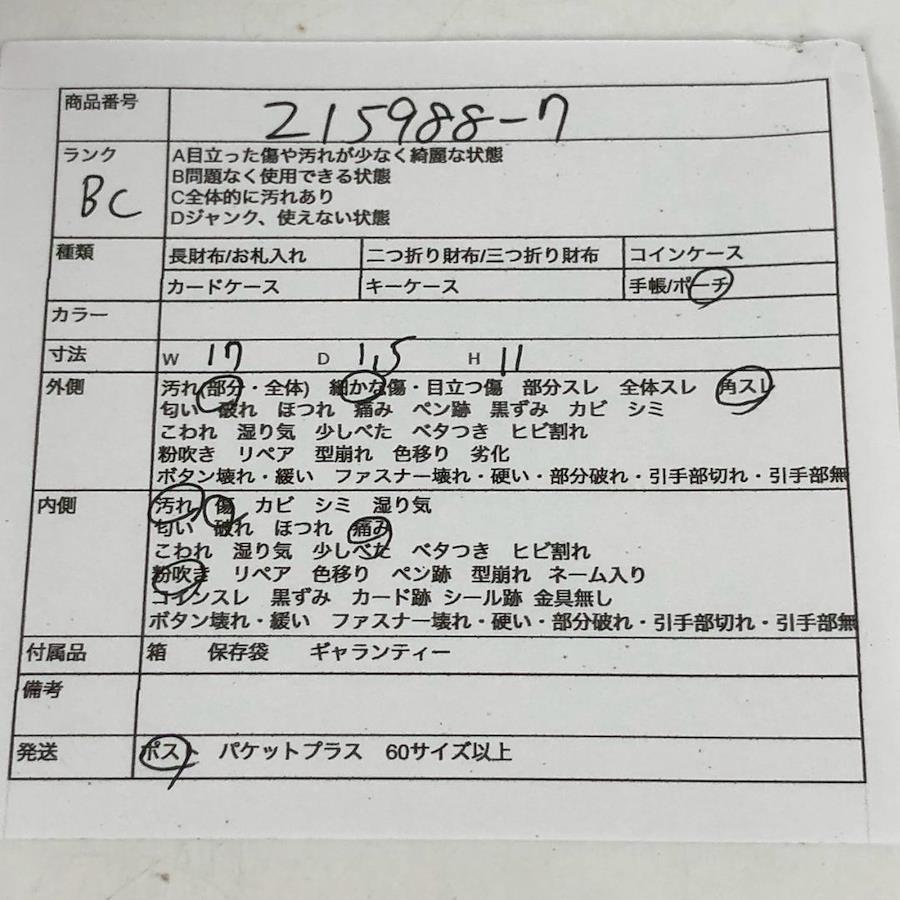 商品番号 215988-7
ランク BC
A目立った傷や汚れが少なく綺麗な状態
B問題なく使用できる状態
C全体的に汚れあり
Dジャンク、使えない状態
種類 長財布/お札入れ 二つ折り財布/三つ折り財布 コインケース
カードケース キーケース 手帳/ポーチ
カラー
寸法 W 17 D 1,5 H 11
外側 汚れ(部分・全体) 細かな傷・目立つ傷 部分スレ 全体スレ 角スレ
匂い 破れ ほつれ 痛み ペン跡 黒ずみ カビ シミ
こわれ 湿り気 少しべた ベタつき ヒビ割れ
粉吹き リペア 型崩れ 色移り 劣化
ボタン壊れ・緩い ファスナー壊れ・硬い・部分破れ・引手部切れ・引手部無
内側 汚れ 傷 カビ シミ 湿り気
匂い 破れ ほつれ 痛み
こわれ 湿り気 少しべた ベタつき ヒビ割れ
粉吹き リペア 色移り ペン跡 型崩れ ネーム入り
コインスレ 黒ずみ カード跡 シール跡 金具無し
ボタン壊れ・緩い ファスナー壊れ・硬い・部分破れ・引手部切れ・引手部無
付属品 箱 保存袋 ギャランティー
備考
発送 ポスト パケットプラス 60サイズ以上